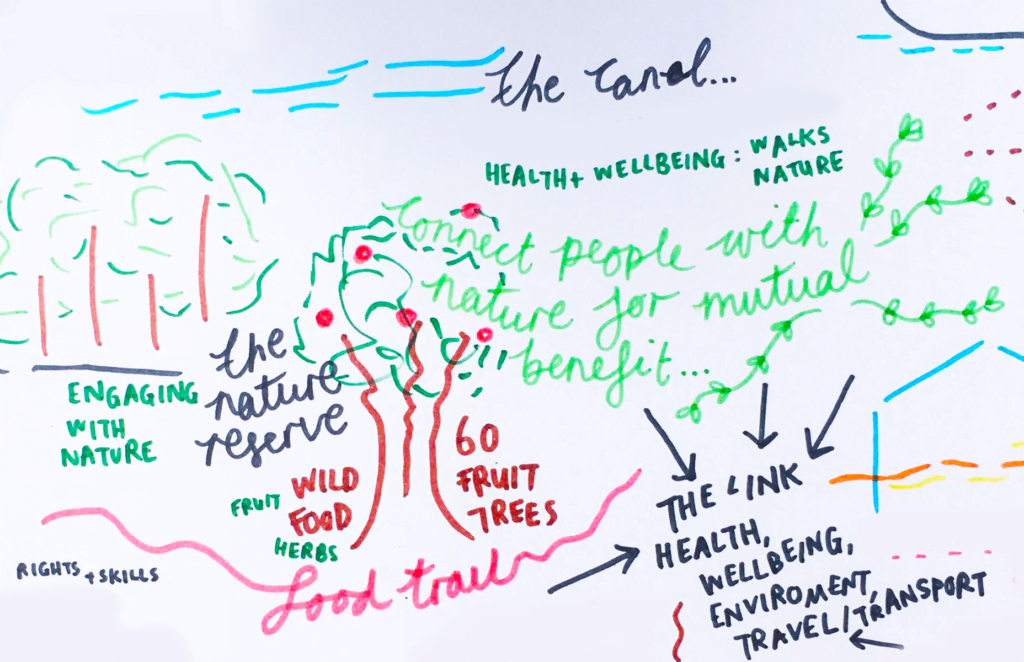 the canal...
HEALTH + WELLBEING : WALKS
NATURE
connect people with
nature for mutual
benefit...
the
nature
reserve
ENGAGING
WITH
NATURE
FRUIT
WILD
FOOD
HERBS
60
FRUIT
TREES
RIGHTS + SKILLS
food trail
THE LINK
HEALTH,
WELLBEING,
ENVIROMENT,
TRAVEL/TRANSPORT